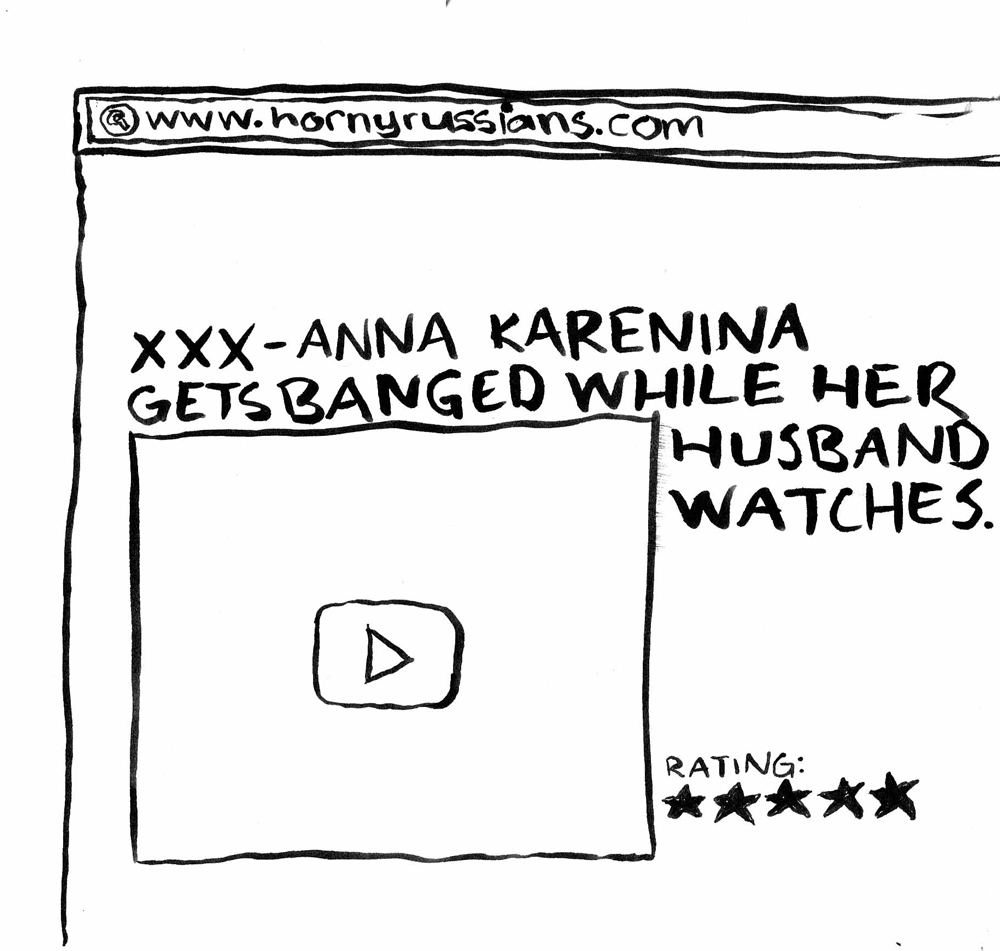 www.hornyrussians.com
XXX-ANNA KARENINA
GETS BANGED WHILE HER
HUSBAND
WATCHES.
RATING: